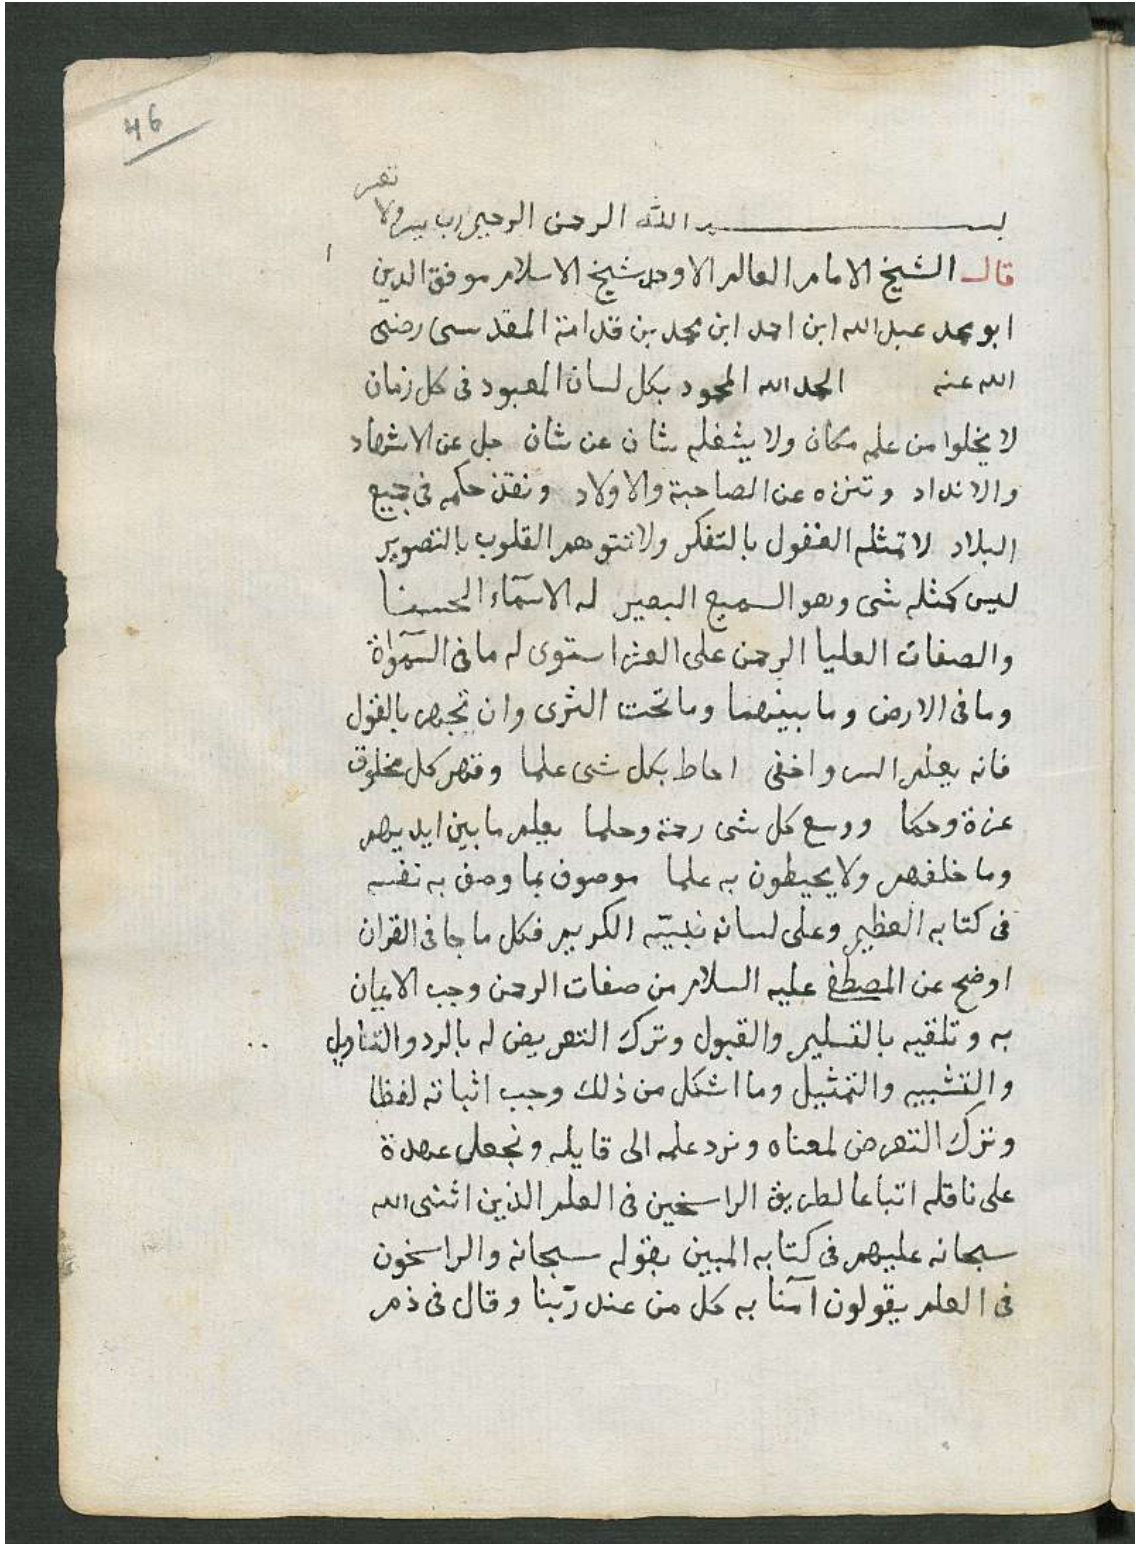 46
تعسر
بسم الله الرحمن الرحيم رب يسر ولا
قال الشيخ الامام العالم الاوحد شيخ الاسلام موفق الدين
ابو محمد عبد الله ابن احمد ابن محمد بن قدامة المقدسى رضى
الله عنه الحمد الله المحمود بكل لسان المعبود فى كل زمان
لا يخلوا من علمه مكان ولا يشغله شان عن شان جل عن الاشهاد
والانداد وتنزه عن الصاحبة والاولاد ونفذ حكمه فى جميع
البلاد لا تمثله العقول بالتفكر ولا تتوهم القلوب بالتصوير
ليس كمثله شى وهو السميع البصير له الاسمآء الحسنا
والصفات العليا الرحمن على العرش استوى له ما فى السمٓواة
وما فى الارض وما بينهما وما تحت الثرى وان تجهر بالقول
فانه يعلم السر واخفى احاط بكل شى علما وقهر كل مخلوق
عزة وحكما ووسع كل شى رحمة وحلما يعلم ما بين ايديهم
وما خلفهم ولا يحيطون به علما موصوف بما وصف به نفسه
فى كتابه العظيم وعلى لسانه نبيّه الكريم فكل ما جا فى القران
اوضح عن المصطفى عليه السلام من صفات الرحمن وجب الايمان
به وتلقيه بالتسليم والقبول وترك التعريض له بالرد والتاويل
والتشبيه والتمثيل وما اشكل من ذلك وجب اثباته لفظا
ونترك التعرض لمعناه ونرد علمه الى قايله ونجعل عهدة
على ناقله اتباعا لطريق الراسخين فى العلم الذين اثنى الله
سبحانه عليهم فى كتابه المبين بقوله سبحانه والراسخون
فى العلم يقولون آمنا به كل من عند ربّنا وقال فى ذم